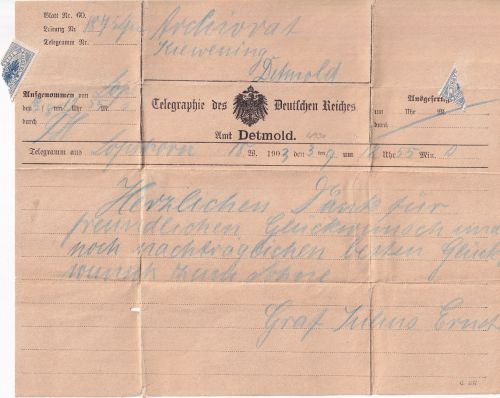 Blatt Nr. 60.
Leitung Nr.
Telegramm Nr.
Archivrat
Kiewening
Detmold
Aufgenommen von
den Uhr Mr
durch
Telegraphie des Deutschen Reiches
Amt Detmold.
Ausgefertigt
um Uhr M
durch
Telegramm aus 18 W. 1903 den 3 um 9 Uhr 55 Min.
Herzlichen Dank für
freundlichen Glückwunsch und
noch nachträglichen besten Glück
wunsch zum Sohne
Graf Julius Ernst